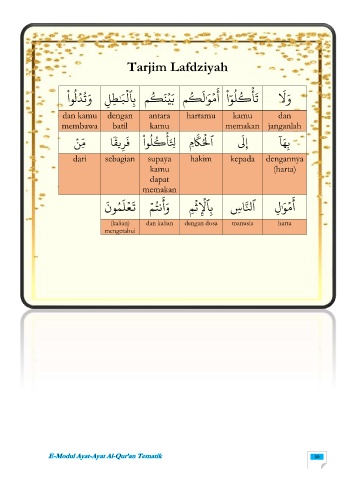 Tarjim Lafdziyah
وَلَا تَأْكُلُوٓا۟ أَمْوَٰلَكُم بَيْنَكُم بِٱلْبَٰطِلِ وَتُدْلُوا۟
dan janganlah kamu memakan hartamu antara kamu dengan batil dan kamu membawa
بِهَآ إِلَى ٱلْحُكَّامِ لِتَأْكُلُوا۟ فَرِيقًا مِّنْ
dengannya (harta) kepada hakim supaya kamu dapat memakan sebagian dari
أَمْوَٰلِ ٱلنَّاسِ بِٱلْإِثْمِ وَأَنتُمْ تَعْلَمُونَ
harta manusia dengan dosa dan kalian (kalian) mengetahui
E-Modul Ayat-Ayat Al-Qur'an Tematik